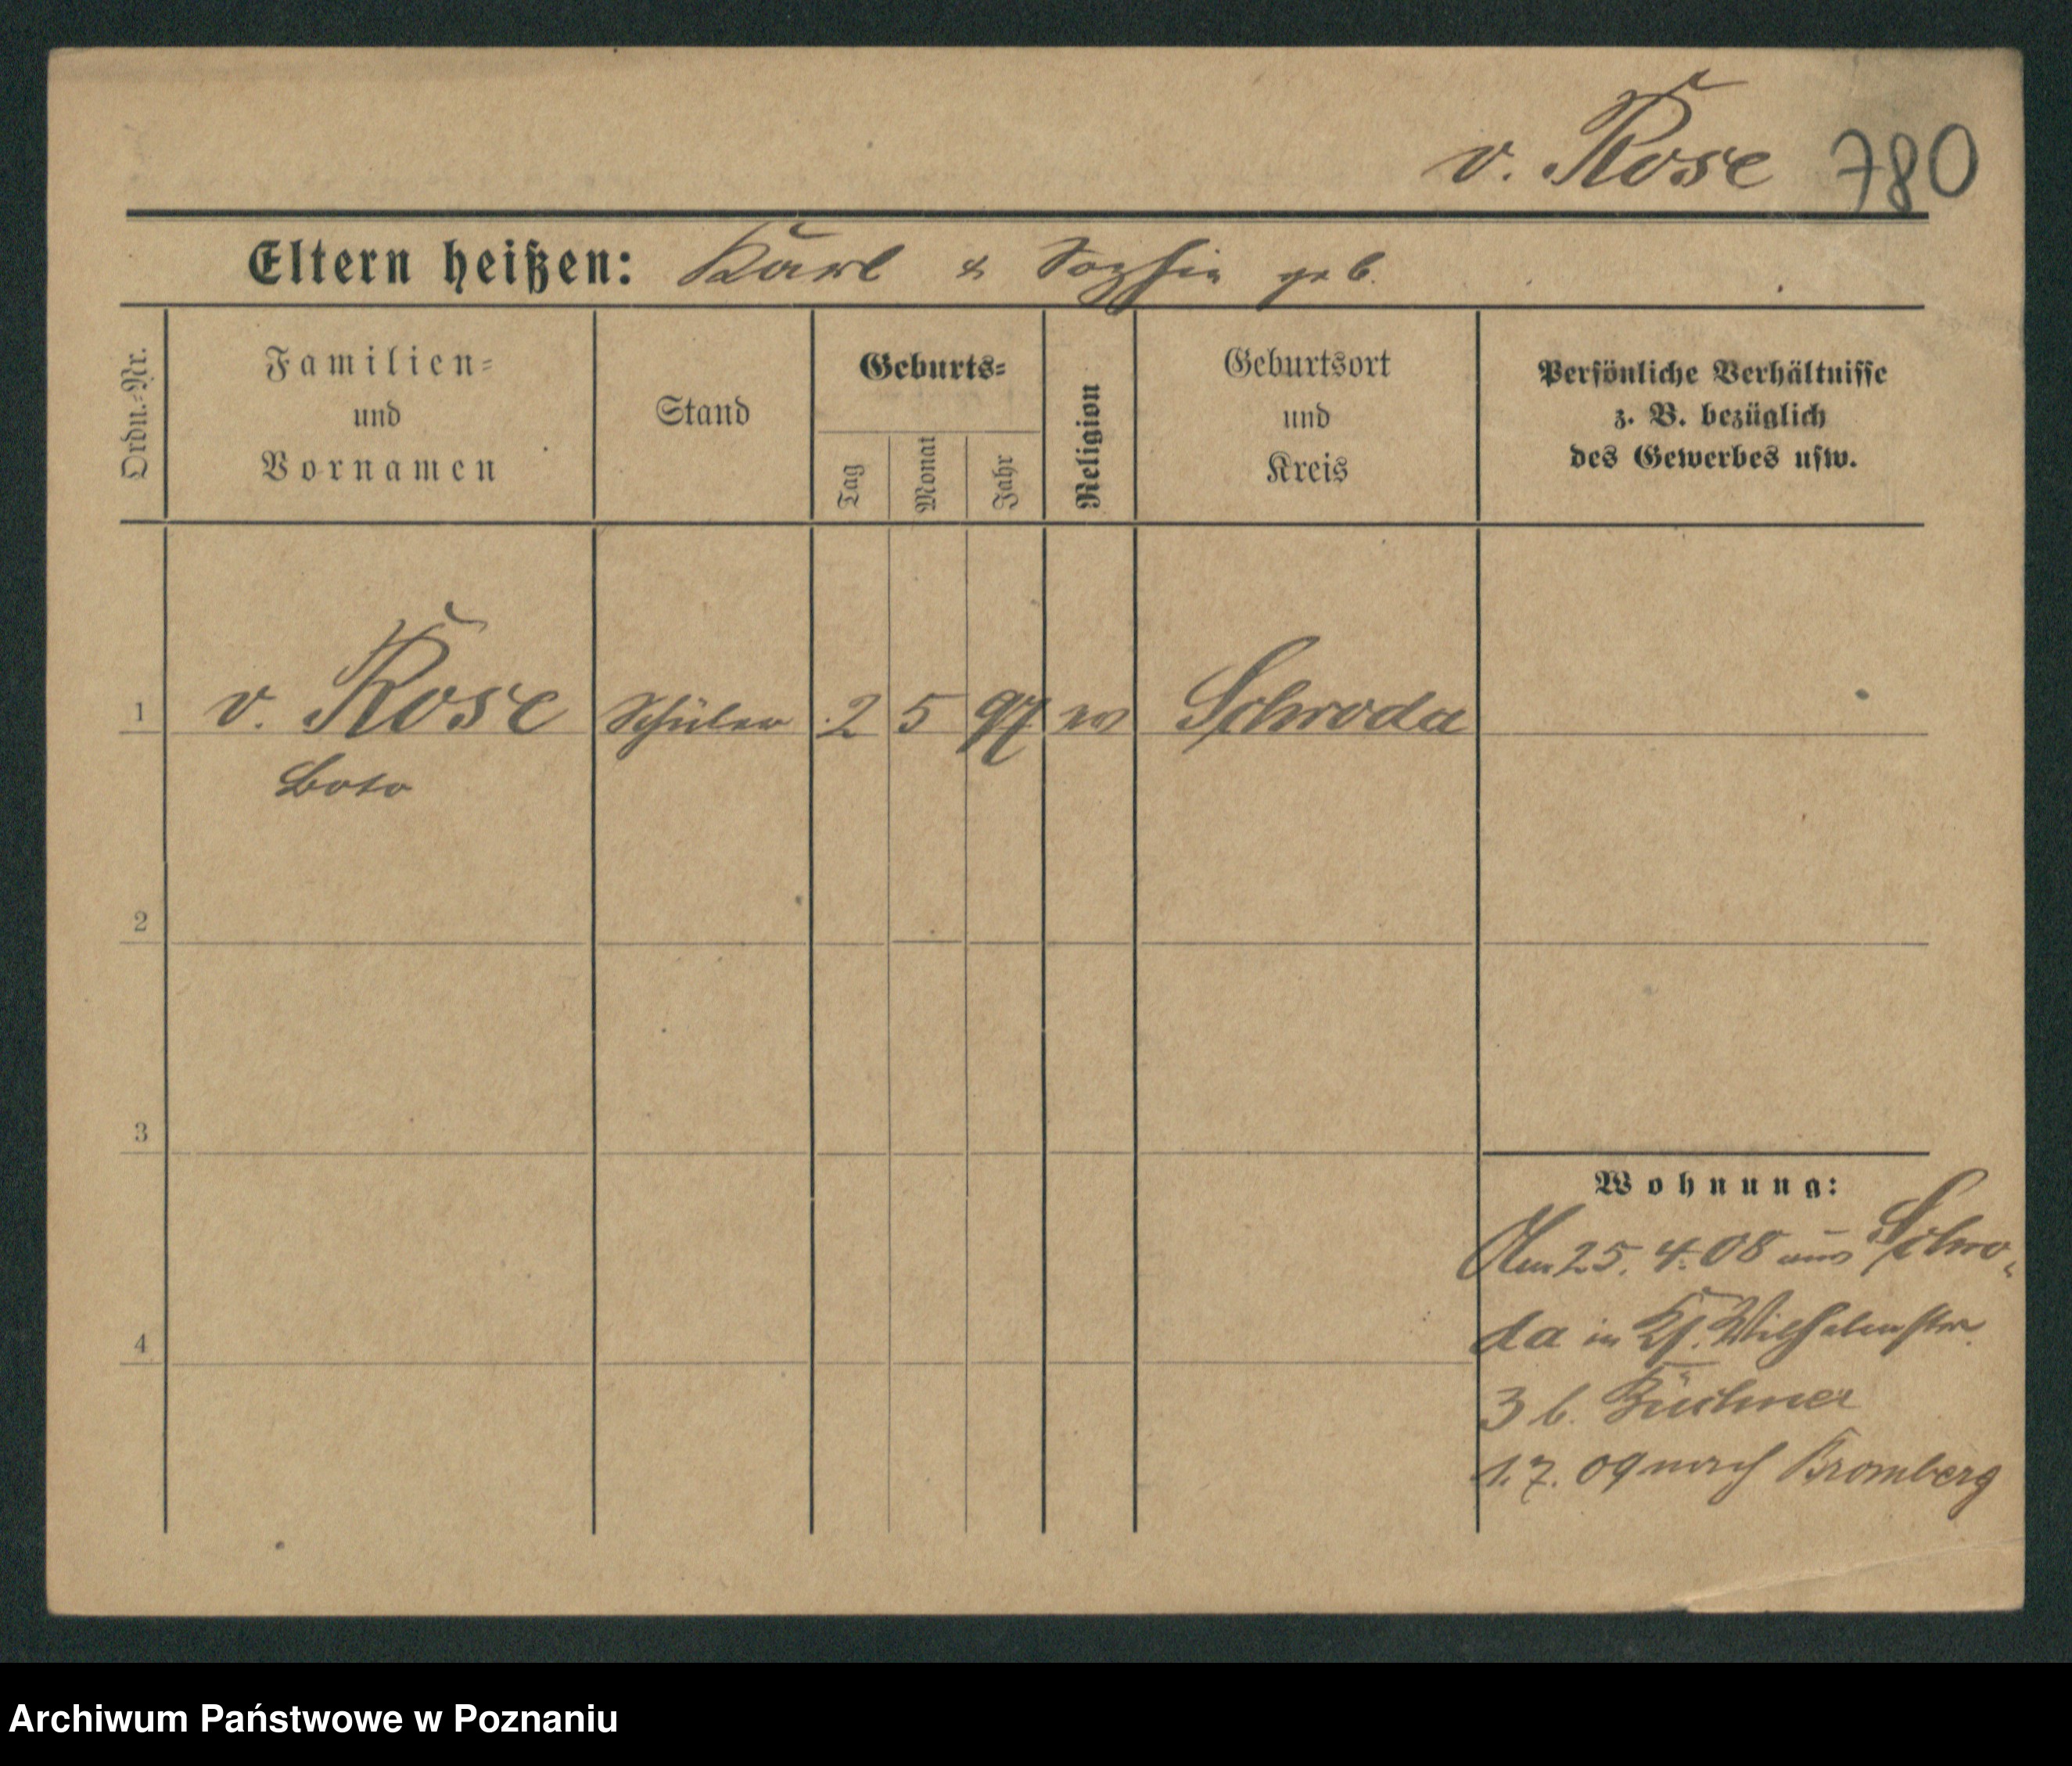 v. Rose 780
Eltern heißen: Karl & Sophie geb.
Ordn.-Nr.
Familien=
und
Vornamen
Stand
Geburts=
Tag
Monat
Jahr
Religion
Geburtsort
und
Kreis
Persönliche Verhältnisse
z. B. bezüglich
des Gewerbes usw.
1 v. Rose Schüler 2 5 97 ev Schroda
Boto
2
3
4
Wohnung:
Am 25. 4. 08 aus Schro-
da in Kf. Wilhelmstr.
3 b. Büchner
1. 7. 09 nach Bromberg
Archiwum Państwowe w Poznaniu